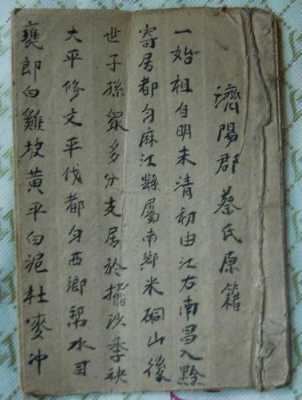 濟陽郡蔡氏原籍
一始祖自明末清初由江右南昌入黔
寄居都匀麻江縣屬南鄉米硐山後
世子孫眾多分支居於擺沙季
大平修文平伐都匀西鄉幫水司
甕郎白雞坡黃平白泥杜麥冲